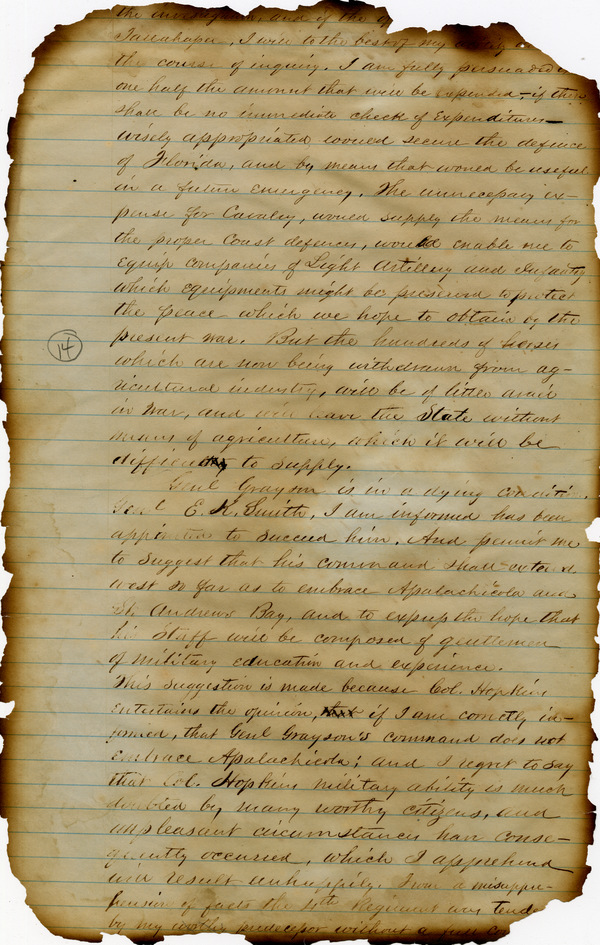 the and of the
Tallahassee, I will to the best of my
the course of inquiry. I am fully persuaded
one half the amount that will be expended, if there
shall be no immediate check of expenditure—
wisely appropriated would secure the defence
of Florida, and by means that would be useful
in a future emergency. The unnecessary ex-
pense for Cavalry, would supply the means for
the proper Coast defences, would enable me to
Equip companies of Light Artillery and Infantry
which equipments might be preserved to protect
the peace which we hope to obtain by the
present war. But the hundreds of horses
14
which are now being withdrawn from ag-
ricultural industry, will be of little avail
in war, and will leave the State without
means of agriculture, which it will be
difficult to supply.
Genl Grayson is in a dying condition.
Genl E. K. Smith, I am informed has been
appointed to succeed him. And permit me
to suggest that his command shall extend
west so far as to embrace Apalachicola and
St. Andrews Bay, and to express the hope that
his Staff will be composed of gentlemen
of military education and experience.
This suggestion is made because Col. Hopkins
entertains the opinion, if I am correctly in-
formed, that Genl Grayson's command does not
embrace Apalachicola; and I regret to say
that Col. Hopkins military ability is much
doubted by many worthy citizens, and
unpleasant circumstances have conse-
quently occurred, which I apprehend
will result unhappily. a misappre-
hension of facts the 4th Regiment was
by my worthy predecessor without a full